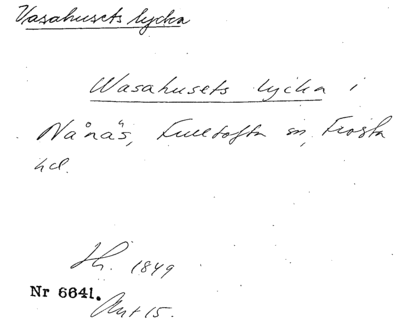 Vasahusets lycka
Wasahusets lycka i
Nånäs, Fulltofta sn, Frosta
hd.
1849
Nr 6641.